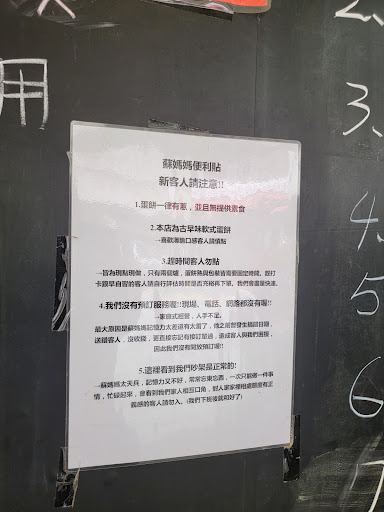 用
2.
3、
4.
5
6
7
蘇媽媽便利貼
新客人請注意!!
1.蛋餅一律有蔥，並且無提供素食
2.本店為古早味軟式蛋餅
→喜歡薄脆口感客人請慎點
3.趕時間客人勿點
→皆為現點現做，只有兩個爐，蛋餅熟與包裝皆需要固定時間，趕打
卡跟早自習的客人請自行評估時間是否充裕再下單。我們會盡量快速。
4.我們沒有預訂服務喔!!現場、電話、網路都沒有喔!!
→家庭式經營，人手不足。
最大原因是蘇媽媽記憶力太差還有太雷了，她之前曾發生搞錯日期，
送錯客人，沒收錢，更直接忘記有接訂單過，造成客人與我們困擾，
因此我們沒有開放預訂喔!!
5.這裡看到我們吵架是正常的!
→蘇媽媽太天兵，記憶力又不好，常常忘東忘西，一次只能做一件事
情，忙碌起來，會看到我們家人相互口角，對人家家裡相處態度有正
義感的客人請勿入。(我們下班後就和好了)